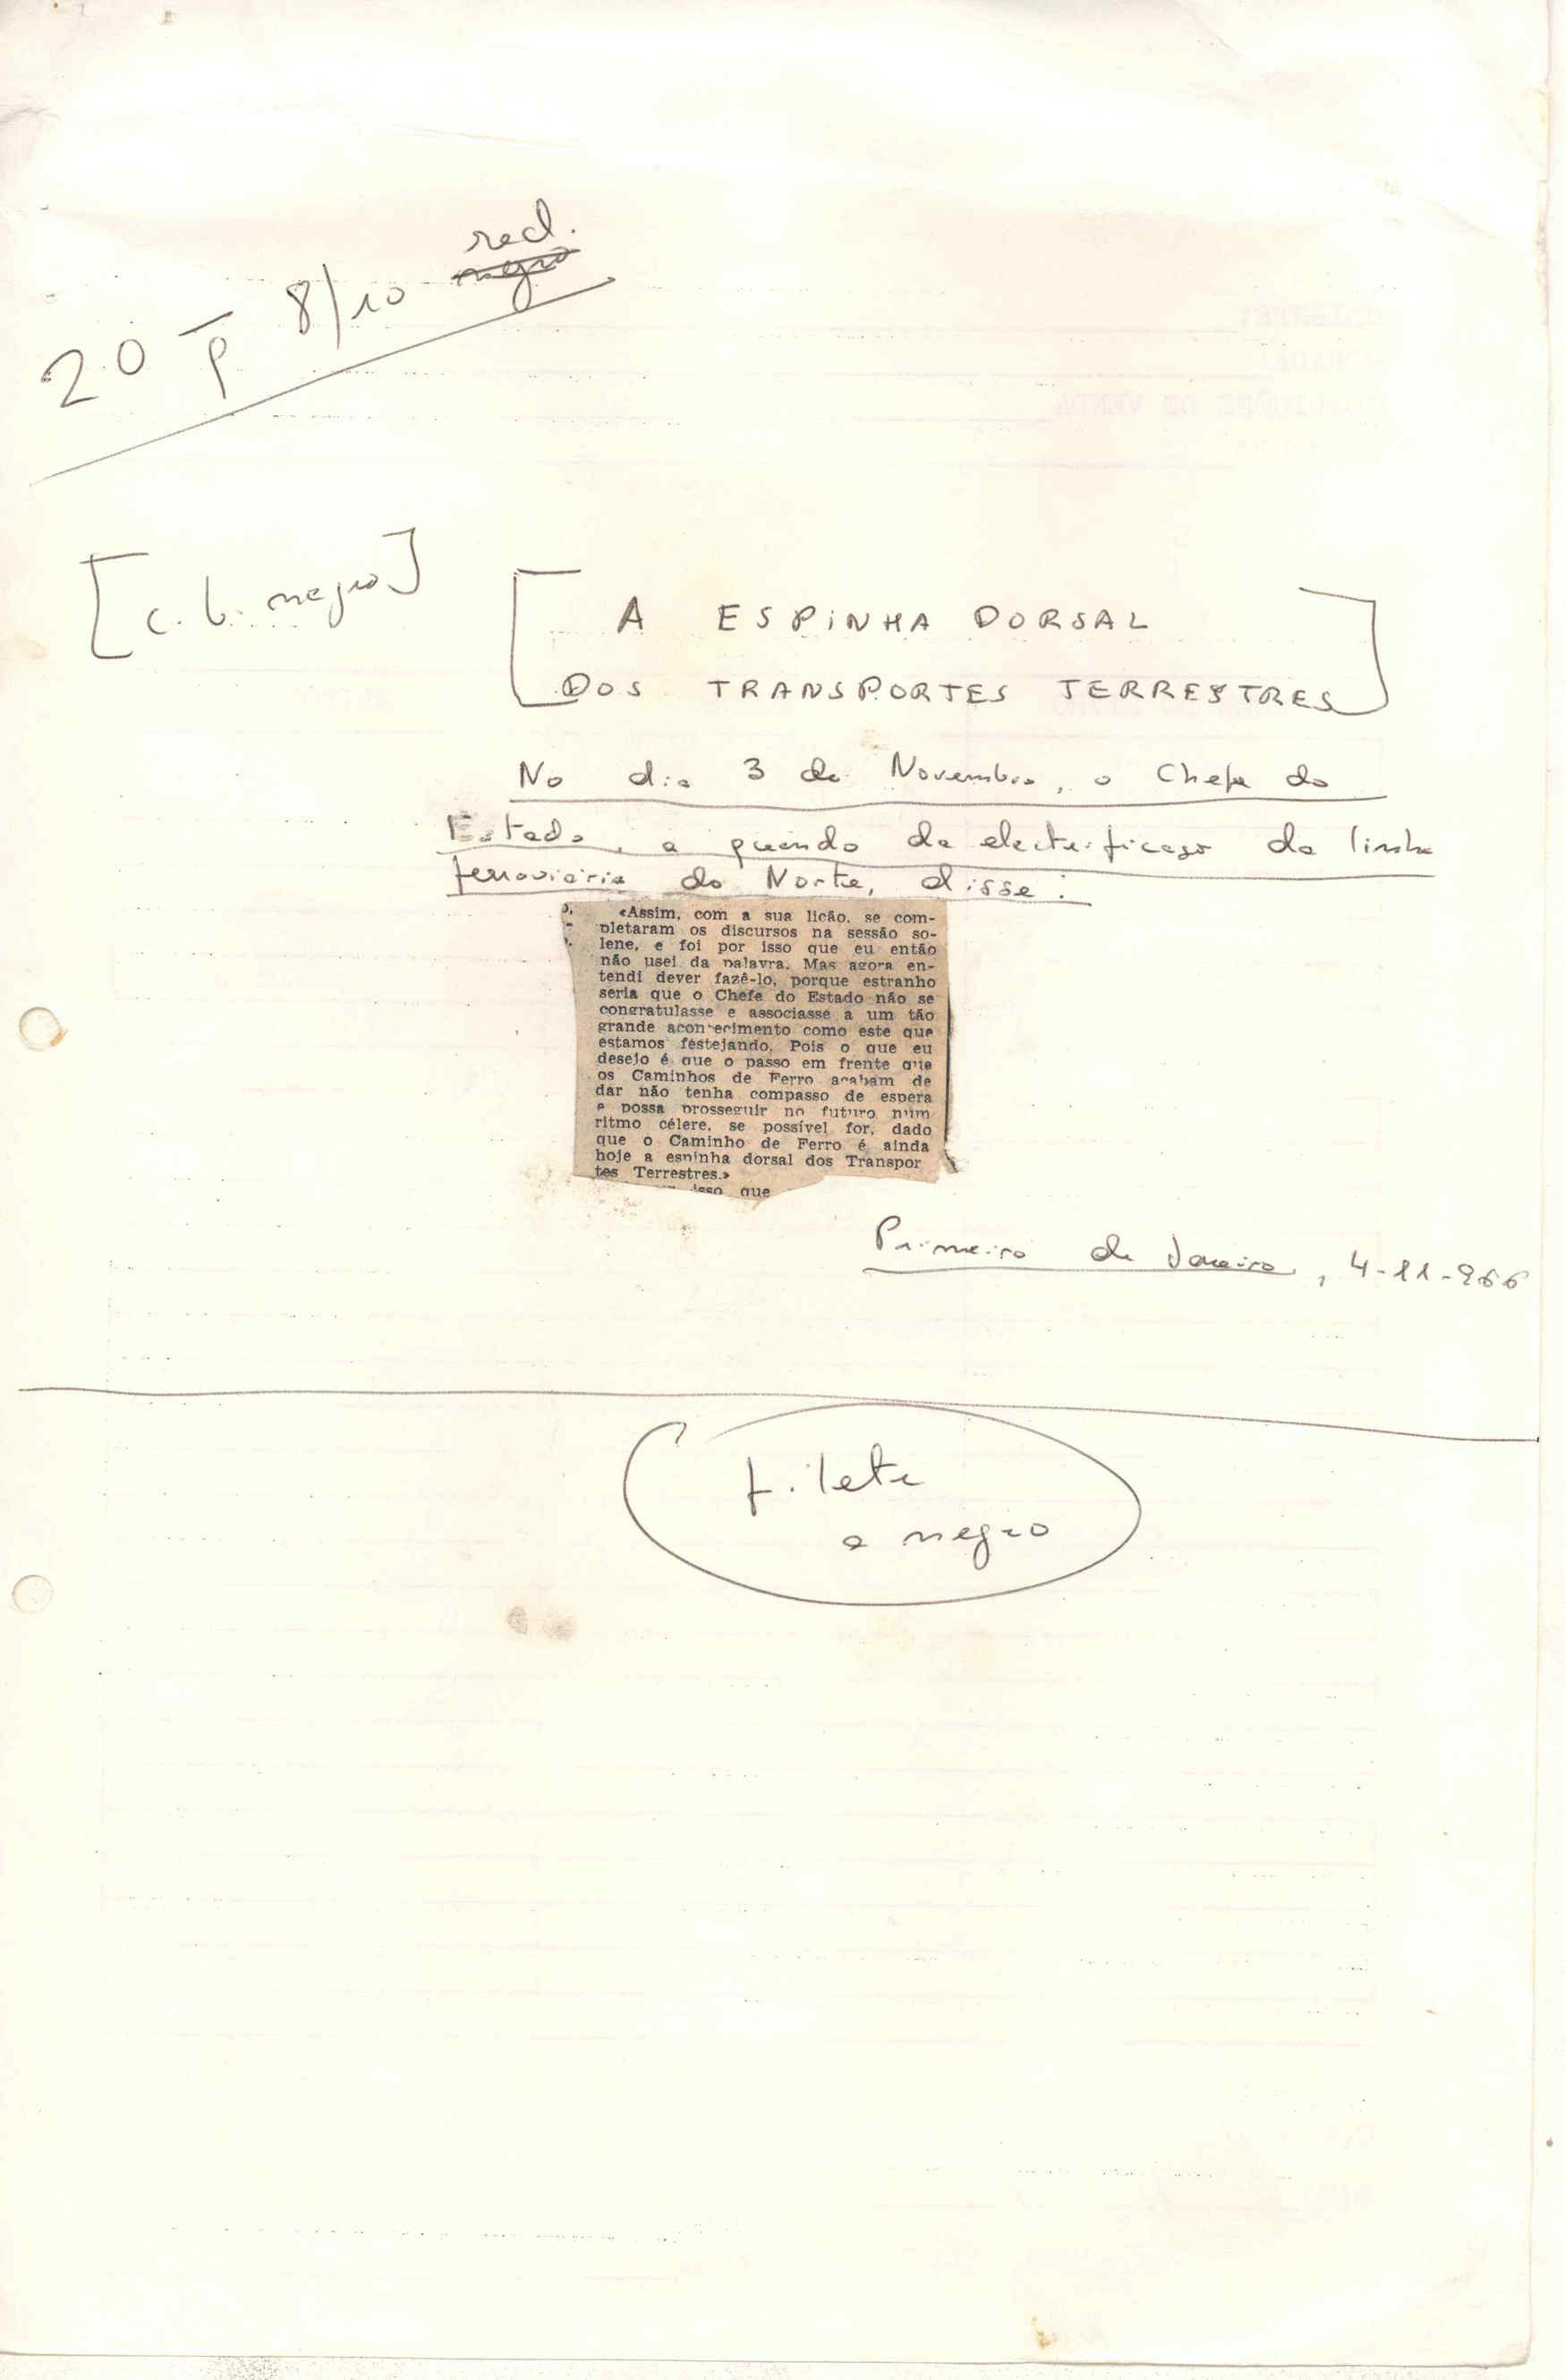 red.
20 p 8/10 negro
[c. b. negro]
[A ESPINHA DORSAL
DOS TRANSPORTES TERRESTRES]
No dia 3 de Novembro, o Chefe do
Estado, a quando da electrificação da linha
ferroviária do Norte, disse:
«Assim, com a sua lição, se com-
pletaram os discursos na sessão so-
lene, e foi por isso que eu então
não usei da palavra. Mas agora en-
tendi dever fazê-lo, porque estranho
seria que o Chefe do Estado não se
congratulasse e associasse a um tão
grande acontecimento como este que
estamos festejando. Pois o que eu
desejo é que o passo em frente que
os Caminhos de Ferro acabam de
dar não tenha compasso de espera
e possa prosseguir no futuro num
ritmo célere, se possível for, dado
que o Caminho de Ferro é ainda
hoje a espinha dorsal dos Transpor
tes Terrestres.»
isso que
Primeiro de Janeiro, 4-11-966
filete
a negro